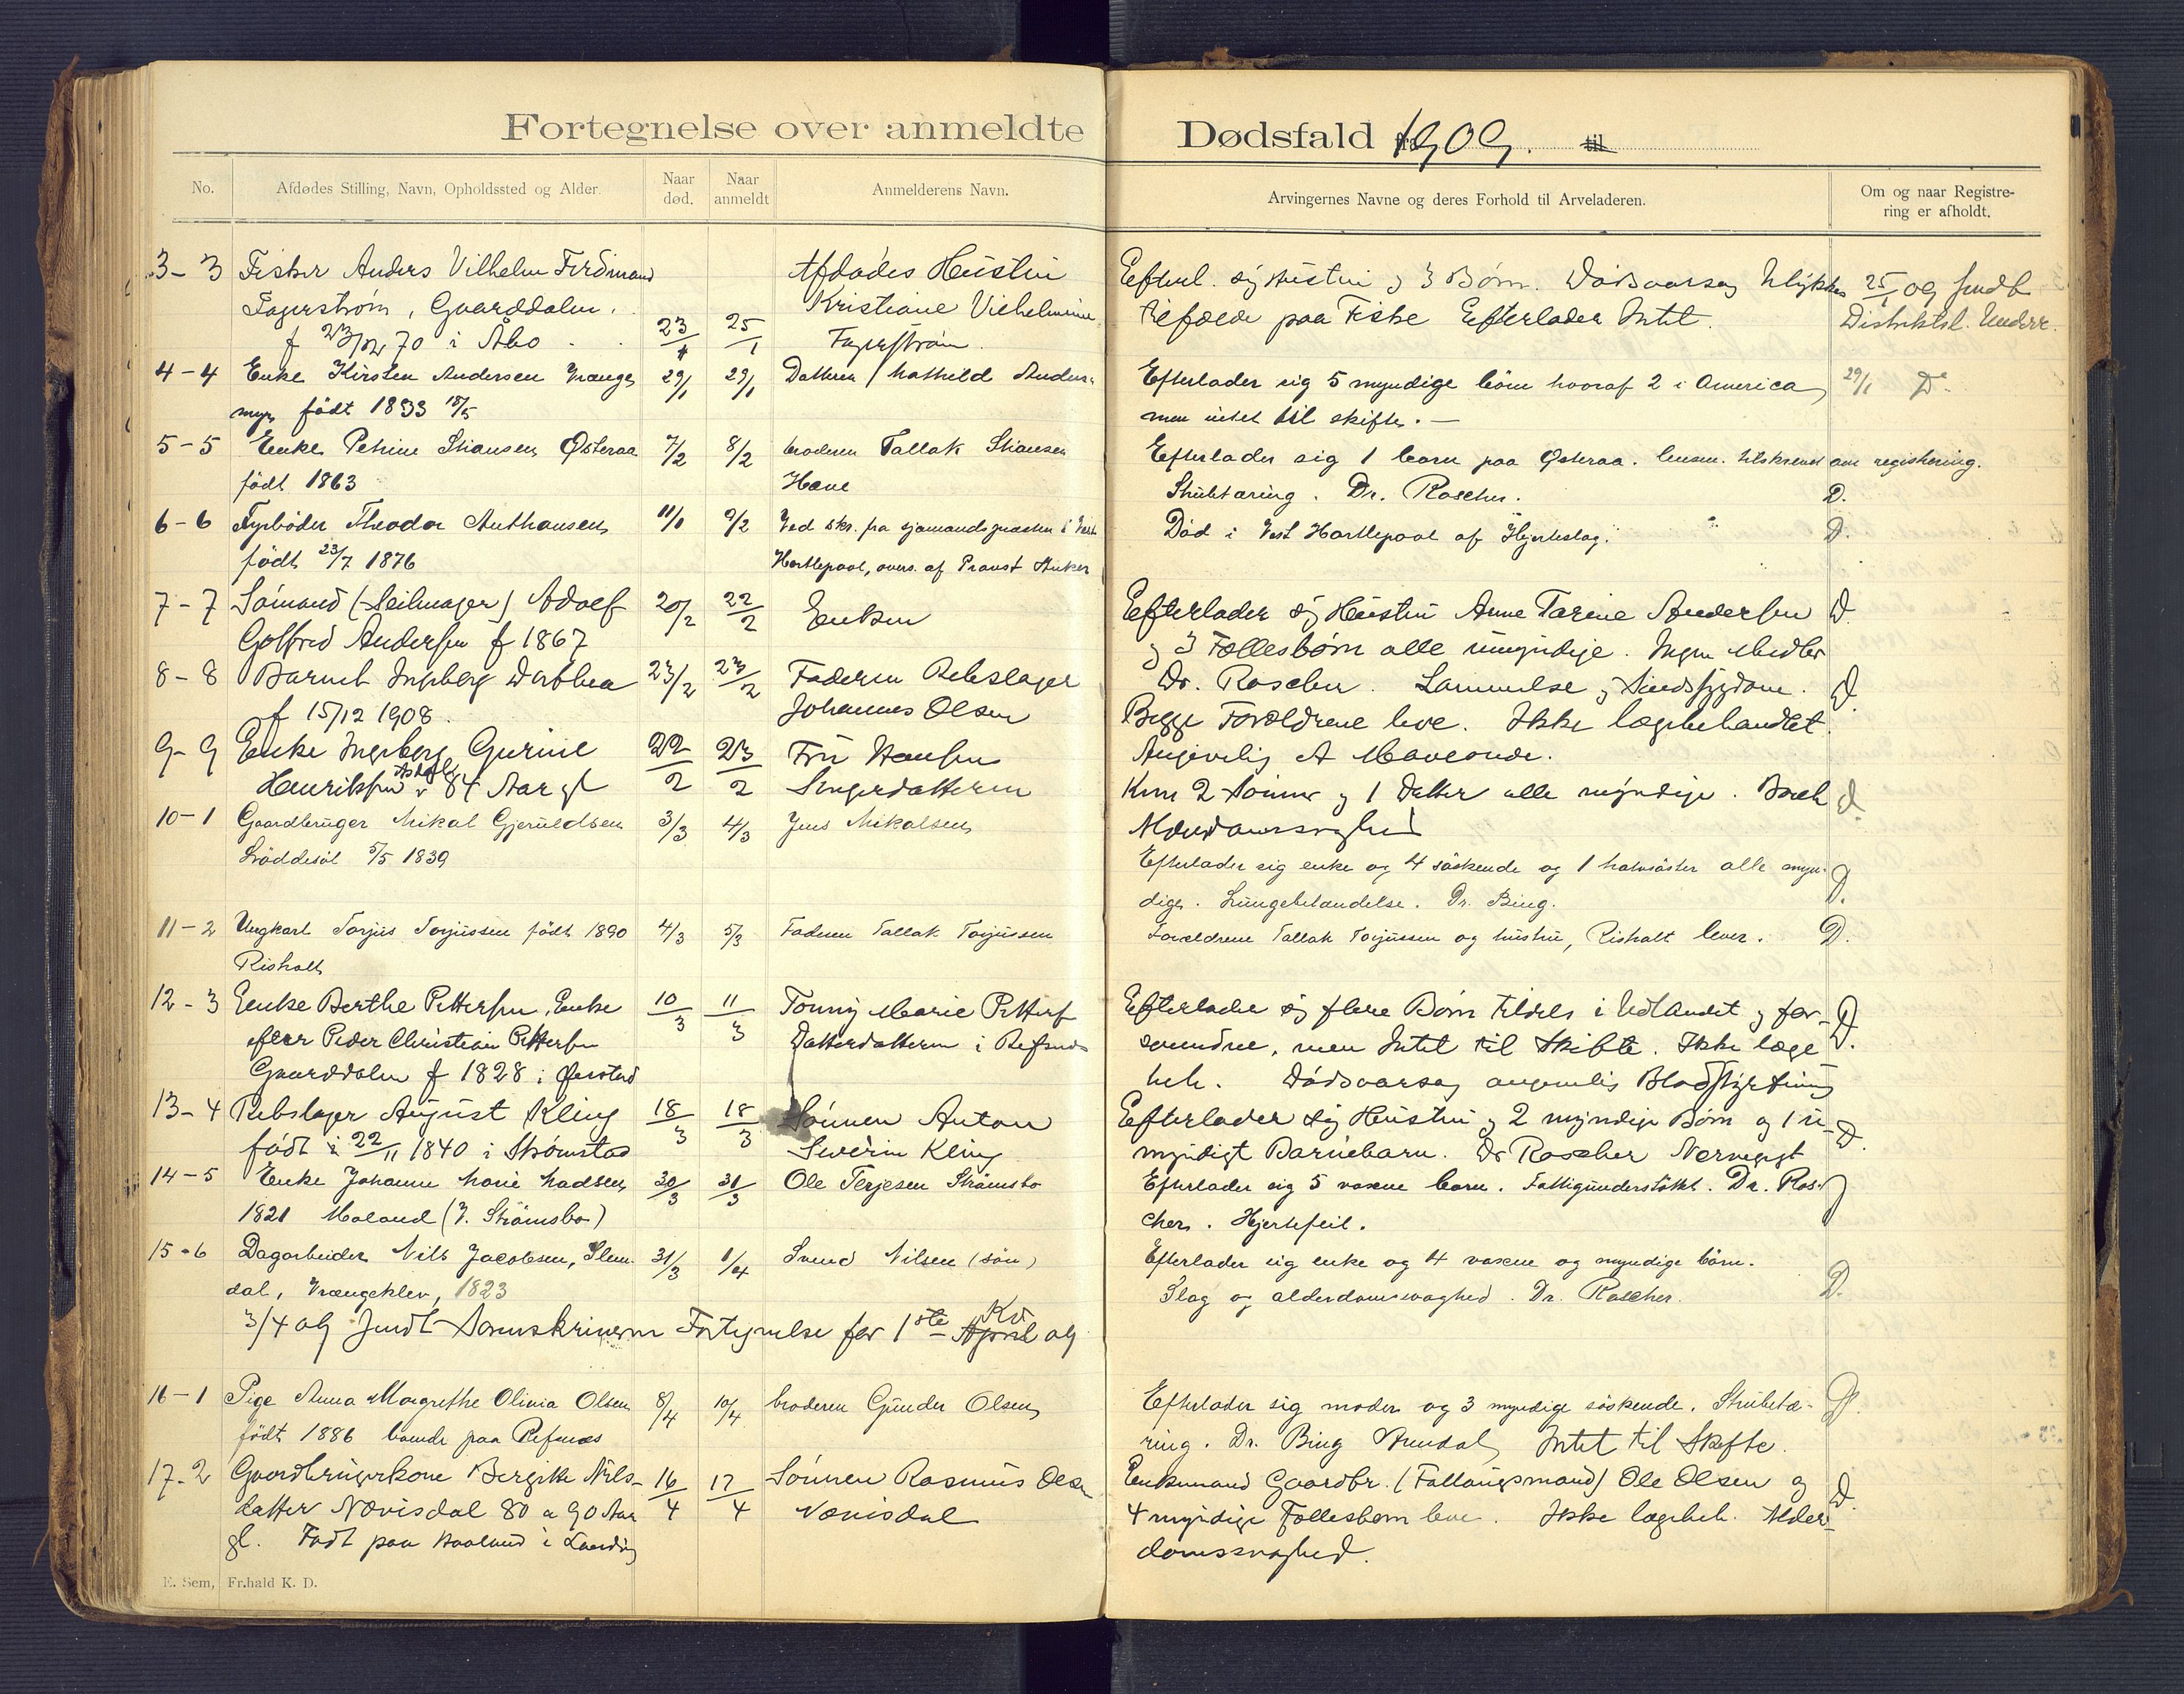 Fortegnelse over anmeldte Dødsfald 1909. til
No.
Afdødes Stilling, Navn, Opholdssted og Alder.
Naar død.
Naar anmeldt
Anmelderens Navn.
Arvingernes Navne og deres Forhold til Arveladeren.
Om og naar Registrering er afholdt.
3-3 Fisker Anders Vilhelm Ferdinand
Fagerstrøm, Gaarddalen.
f 23/12 70 i Åbo
23/1 25/1
Afdødes Hustru
Kristiane Vilhelmine
Fagerstrøm
Efterl. sig Hustru og 3 Børn. Dødsaarsag Ulykkes
tilfælde paa Fiske Efterlader Intet.
25/1 09 sendt
Distriktsl. Underr.
4-4 Enke Kirsten Andersen Vrænge
myr født 1833 18/5
29/1 29/1
Datteren Mathilde Anders.
Efterlader sig 5 myndige børn hvoraf 2 i America,
men intet til skifte. —
29/1 Do
5-5 Enke Petrine Stiansen Østeraa
født 1863
7/2 8/2
broderen Tallak Stiansen
Have
Efterlader sig 1 barn paa Østeraa. lensm. tilskrevet om registrering.
Strubetæring. Dr. Roscher.
D.
6-6 Fyrbøder Theodor Anthonsen
født 23/7 1876
11/1 9/2
Ved skr. fra sjømandspræsten i Vest
Hartlepool, overs. af Provst Anker
Død i Vest Hartlepool af Hjerteslag.
D.
7-7 Sømand (Seilmager) Adolf
Gotfred Andersen f 1867
20/2 22/2
Enken
Efterlader sig Hustru Anne Tarine Andersen
og 3 Fællesbørn alle umyndige. Ingen Midler
Dr. Roscher. Lammelse og Sindssygdom.
D.
8-8 Barnet Ingeborg Dorthea
f 15/12 1908.
23/2 23/2
Faderen Rebslager
Johannes Olsen
Begge Forældrene leve. Ikke lægebehandlet.
Angivelig af Maveonde.
D.
9-9 Enke Ingeborg Gurine
Henriksen 84 Aar gl
22/2 23/2
Fru Hansen
Svigerdatteren
Kun 2 Sønner og 1 Datter alle myndige.
D.
10-1 Gaardbruger Mikal Gjeruldsen
Løddesøl 5/5 1839
3/3 4/3
Jens Mikalsen
Efterlader sig enke og 4 søskende og 1 halvsøster alle myn-
dige. Lungebetændelse. Dr. Bing.
D.
11-2 Ungkarl Torjus Torjussen født 1890
Risholt
4/3 5/3
Faderen Tallak Torjussen
Forældrene Tallak Torjussen og hustru, Risholt lever.
D.
12-3 Enke Berthe Pettersen, Enke
efter Peder Christian Pettersen
Gaarddalen f 1828 i Øiestad
10/3 11/3
Tonny Marie Petters
Datterdatteren i Refsnes
Efterlader sig flere Børn tildels i Udlandet og for-
svundne, men Intet til Skifte. Ikke læge
beh. Dødsaarsag angivelig Blodstyrtning
D.
13-4 Rebslager August Kling
født i 22/11 1840 i Strømstad
18/3 18/3
Sønnen Anton
Severin Kling
Efterlader sig Hustru og 2 myndige Børn og 1 u-
myndigt Barnebarn. Dr Roscher
D.
14-5 Enke Johanne Marie Madsen
1821 Moland (V. Strømsbo)
30/3 31/3
Ole Terjesen Strømsbo
Efterlader sig 5 voxne barn. Fattigunderstøttet. Dr. Ros-
cher. Hjertefeil.
15-6 Dagarbeider Nils Jacobsen, Slem-
dal, Vrængeklev, 1823
31/3 1/4
Svend Nilsen (søn)
Efterlader sig enke og 4 voxne og myndige børn.
Slag og alderdomsvaghed. Dr. Roscher.
D.
3/4 09 sendt Sorenskriveren Fortegnelse for 1ste April Kv. 09
16-1 Pige Anna Margrethe Olivia Olsen
født 1886 boende paa Refsnæs
8/4 10/4
broderen Gunder Olsen
Efterlader sig moder og 3 myndige søskende. Strubetæ-
ring. Dr. Bing Arendal, Intet til Skifte.
D.
17-2 Gaardbrugerkone Bergitte Nils-
datter Nævisdal 80 a 90 Aar
gl. Født paa Haaland i Landvig
16/4 17/4
Sønnen Rasmus Olsen
Nævisdal
Enkemand Gaardbr. (Fattigmand) Ole Olsen og
4 myndige Fællesbørn leve. Ikke lægebeh. Alder-
domssvaghed.
D.
E. Sem, Fr.hald K. D.